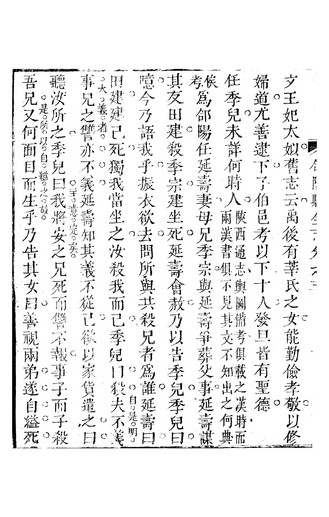 文王妃太姒舊志云禹後有莘氏之女能勤儉孝敬以修
婦道尤善逮下了伯邑考以下十人發旦皆有聖德
任季兒未詳何時人陜西通志輿圖備考俱載之漢時而
兩漢書俱不見其文不知出之何典
候考爲郃陽任延壽妻毋兄季宗與延壽爭葬父事延壽謀
其友田建殺季宗建坐死延壽會赦乃以告季兒季兒曰
噫今乃語我乎振衣欲去問所與共殺兄者爲誰延壽曰
田建建已死獨我當坐之汝殺我而已季兒曰殺夫不義
事兄之讐亦不義延壽知其義不從已欲以家貨遣之曰
聽汝所之季兒曰我將安之兄死而讐不報事子而子殺
吾兄又何面目而生乎乃告其女曰善視兩弟遂自縊死